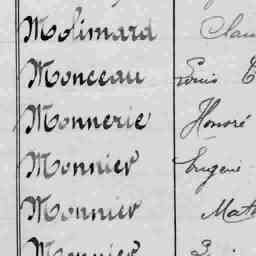 Molimard Clau
Monceau Louis
Monnerie Honoré
Monnier Eugène
Monnier Math
Monnier